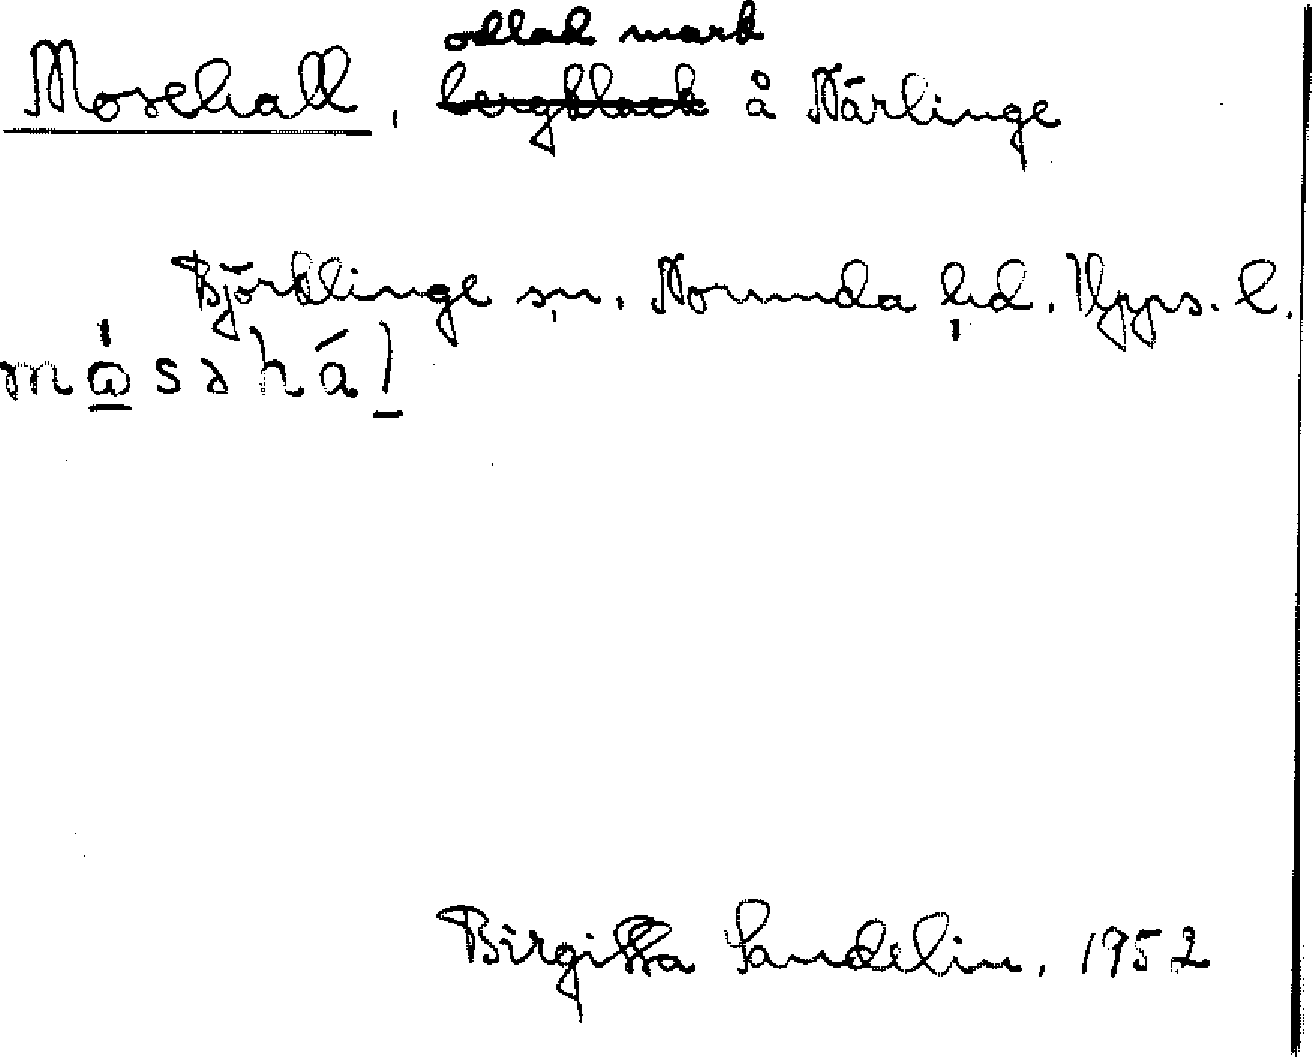 odlad mark
Mosehall, bergblack å Närlinge
Björklinge sn. Norunda hd. Upps. l.
måsəhál
Birgitta Sandelin, 1952